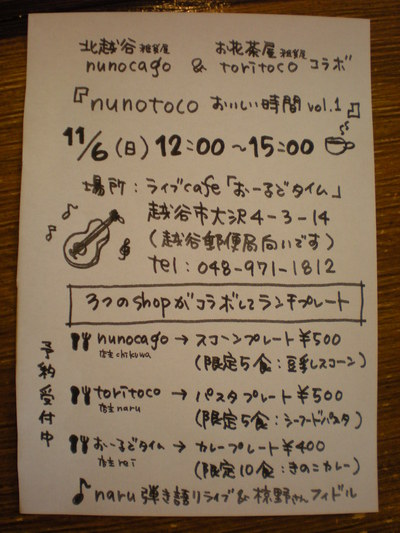 北越谷 雑貨屋 お花茶屋 雑貨屋
nunocago & toritoco コラボ
『nunotoco おいしい時間 vol.1』
11/6(日) 12:00〜15:00
場所:ライブcafe「おーるどタイム」
越谷市大沢4-3-14
(越谷郵便局向いです)
tel:048-971-1812
3つのshopがコラボしてランチプレート
予約受付中
nunocago → スコーンプレート ¥500
店主chikuwa (限定5食:豆乳スコーン)
toritoco → パスタプレート ¥500
店主naru (限定5食:シーフードパスタ)
おーるどタイム → カレープレート ¥400
店主rei (限定10食:きのこカレー)
naru 弾き語りライブ & 椋野さんフィドル